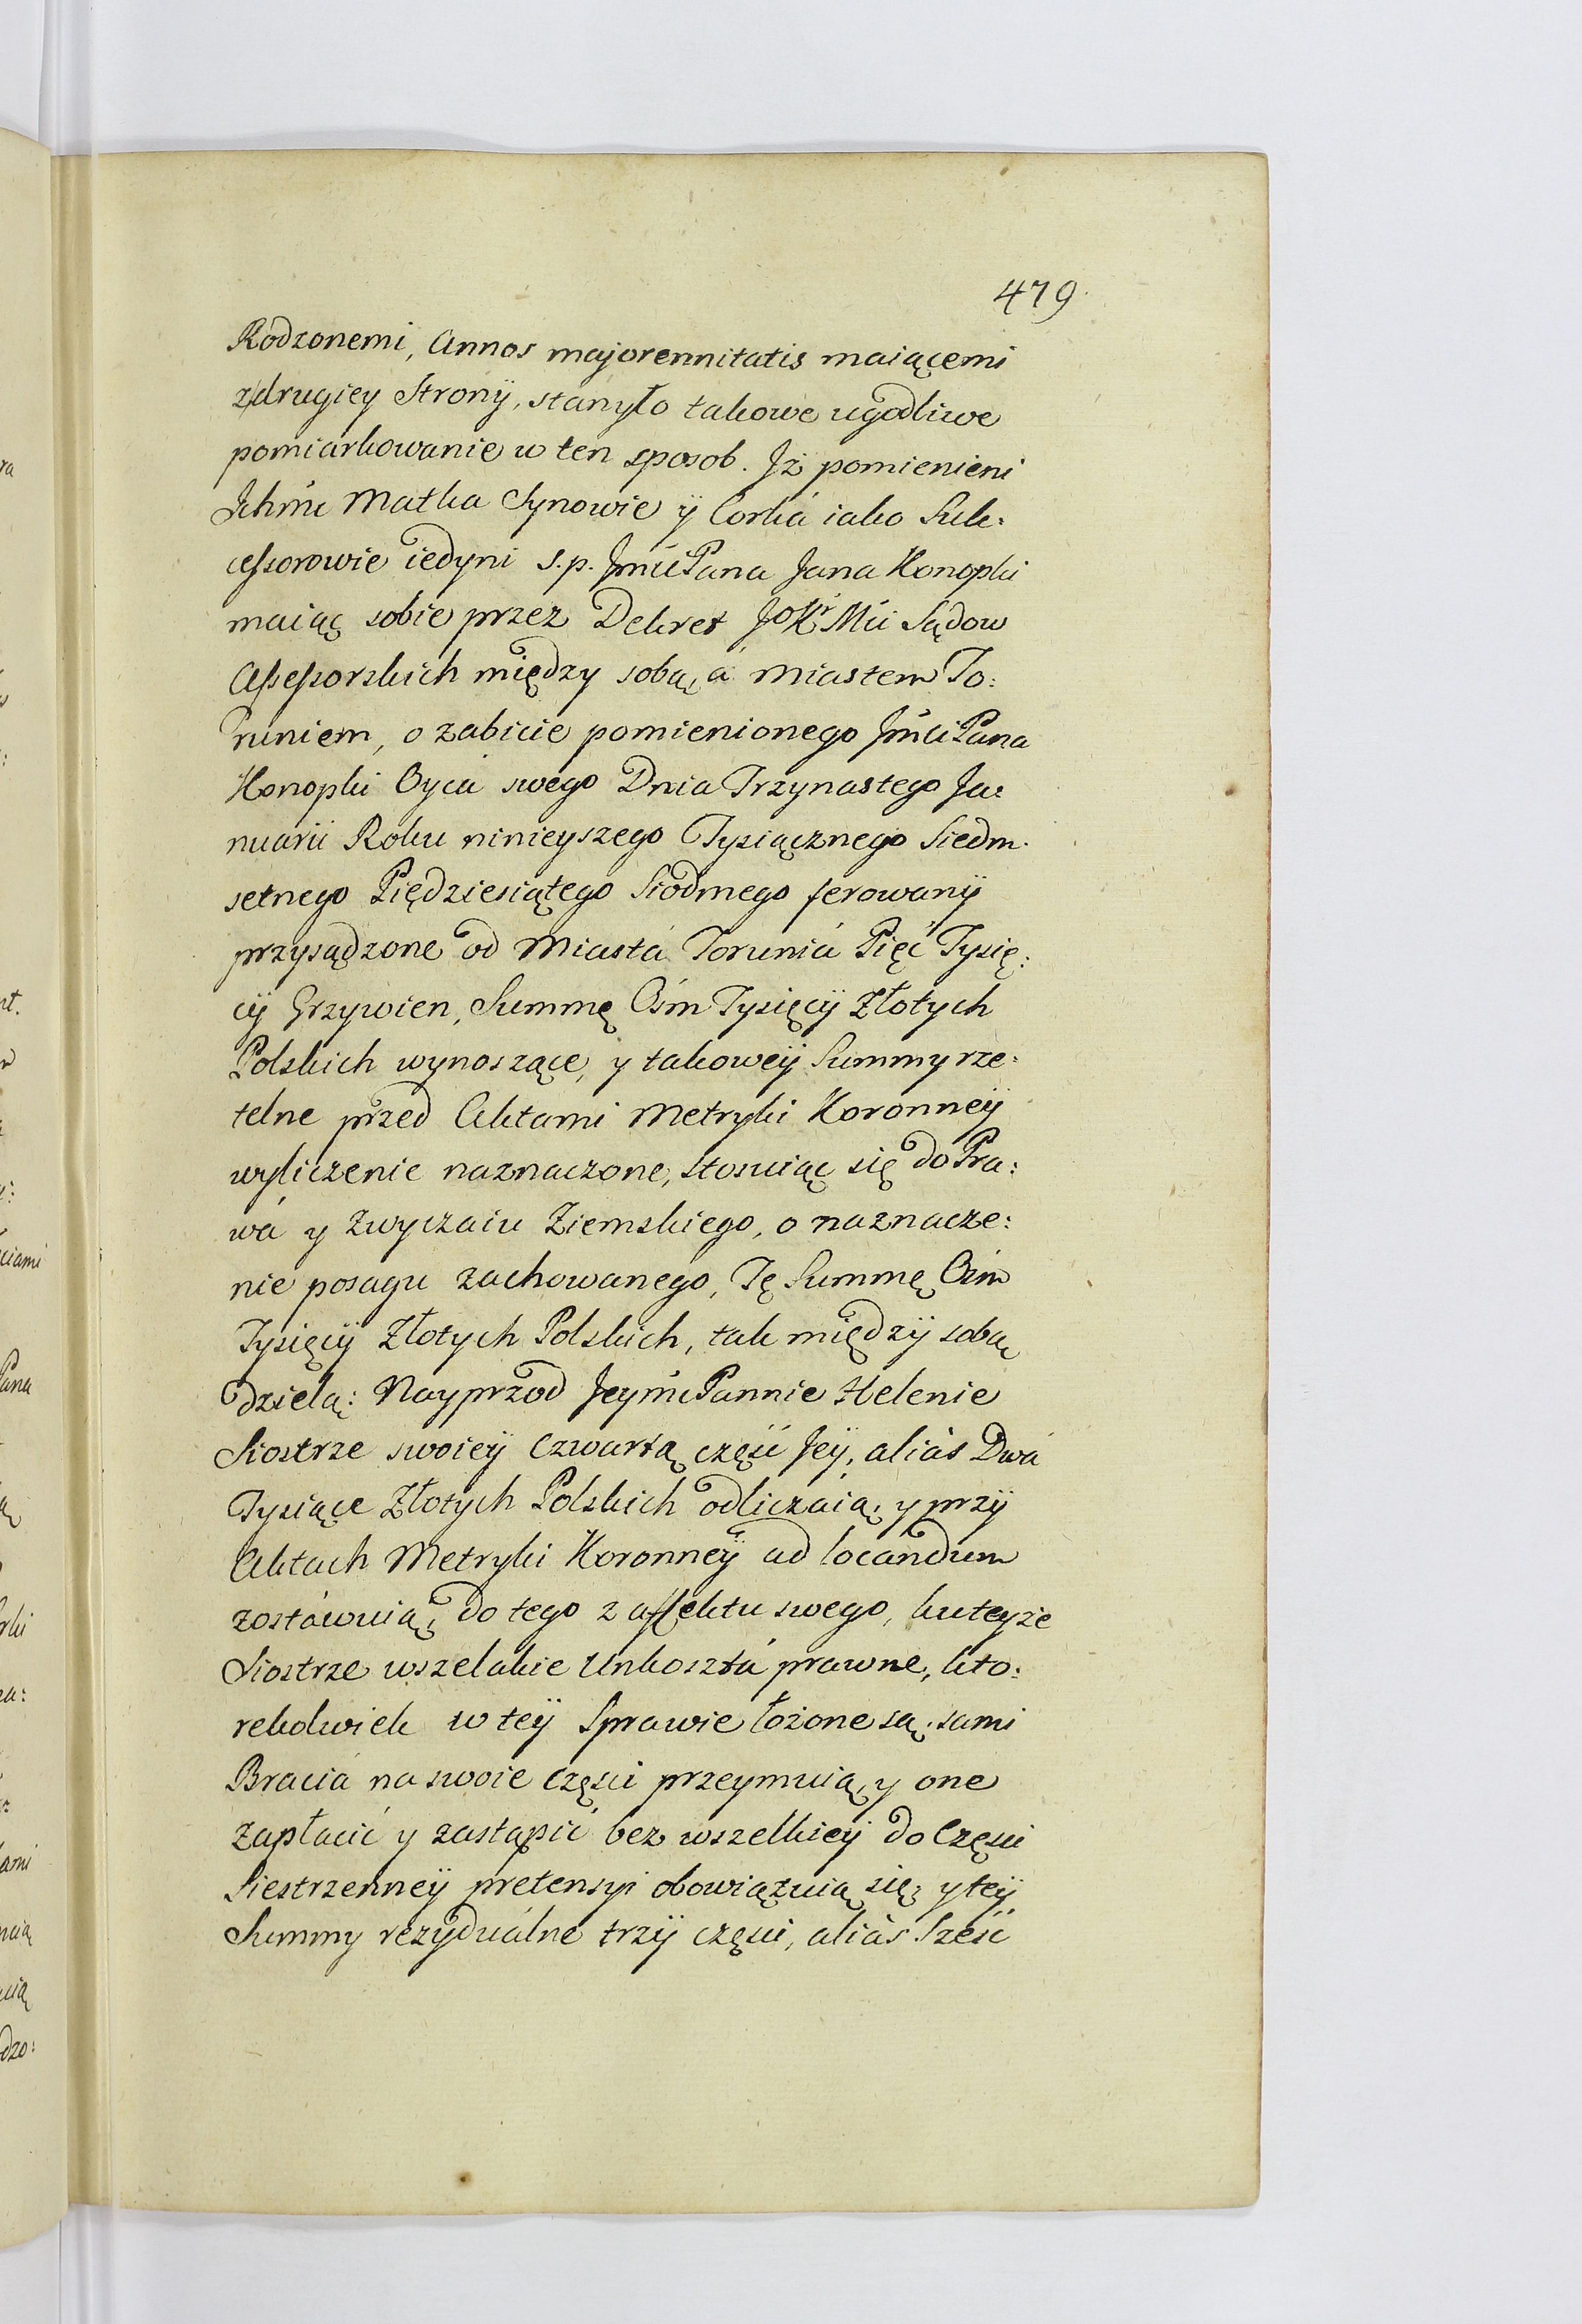 479
Rodzonemi, Annos majorennitatis maiącemi
z drugiey Strony, stanyło takowe ugodliwe
pomiarkowanie w ten sposob. Jż pomienieni
Ichmć Matka Synowie ÿ Corká iako Suk:
cessorowie iedyni s.p. Jmći Pana Jana Konopki
maiąc sobie przez Dekret JoKr Mći Sądow
Assessorskich między sobą, á Miastem To:
runiem, o zabicie pomienionego Jmći Pana
Konopki Oycá swego Dnia Trzynastego Ja:
nuarii Roku ninieyszego Tysiącznego Siedm.
setnego Piędziesiątego Siodmego ferowanÿ
przysądzone od Miastá Toruniá Pięć Tysię:
cÿ Grzywien, Summę Ośm Tysięcÿ Złotych
Polskich wynoszące, y takoweÿ Summy rze:
telne przed Aktami Metryki Koronneÿ
wyliczenie naznaczone, stosuiąc się do Pra:
wá y Zwyczaiu Ziemskiego, o naznacze:
nie posagu zachowanego, Tę Summę Ośm
Tysięcÿ Złotych Polskich, tak międzÿ sobą
dzielą: Nayprzod Jeymć Pannie Helenie
Siostrze swoieÿ Czwartą część Jeÿ, aliàs Dwá
Tysiące Złotych Polskich odliczáią, y przÿ
Aktach Metryki Koronneÿ ad locandum
zostáwuią, do tego z affektu swego, ku teyże
Siostrze wszelakie Unkosztá prawne, kto:
rekolwiek w teÿ Sprawie łożone są, sami
Braciá na swoie Części przeymuią, y one
Zapłacić y zastąpić bez wszelkieÿ do Części
Siestrzenneÿ pretensyi obowiązuią się, y teÿ
Summy rezyduálne trzÿ części, aliàs Sześć